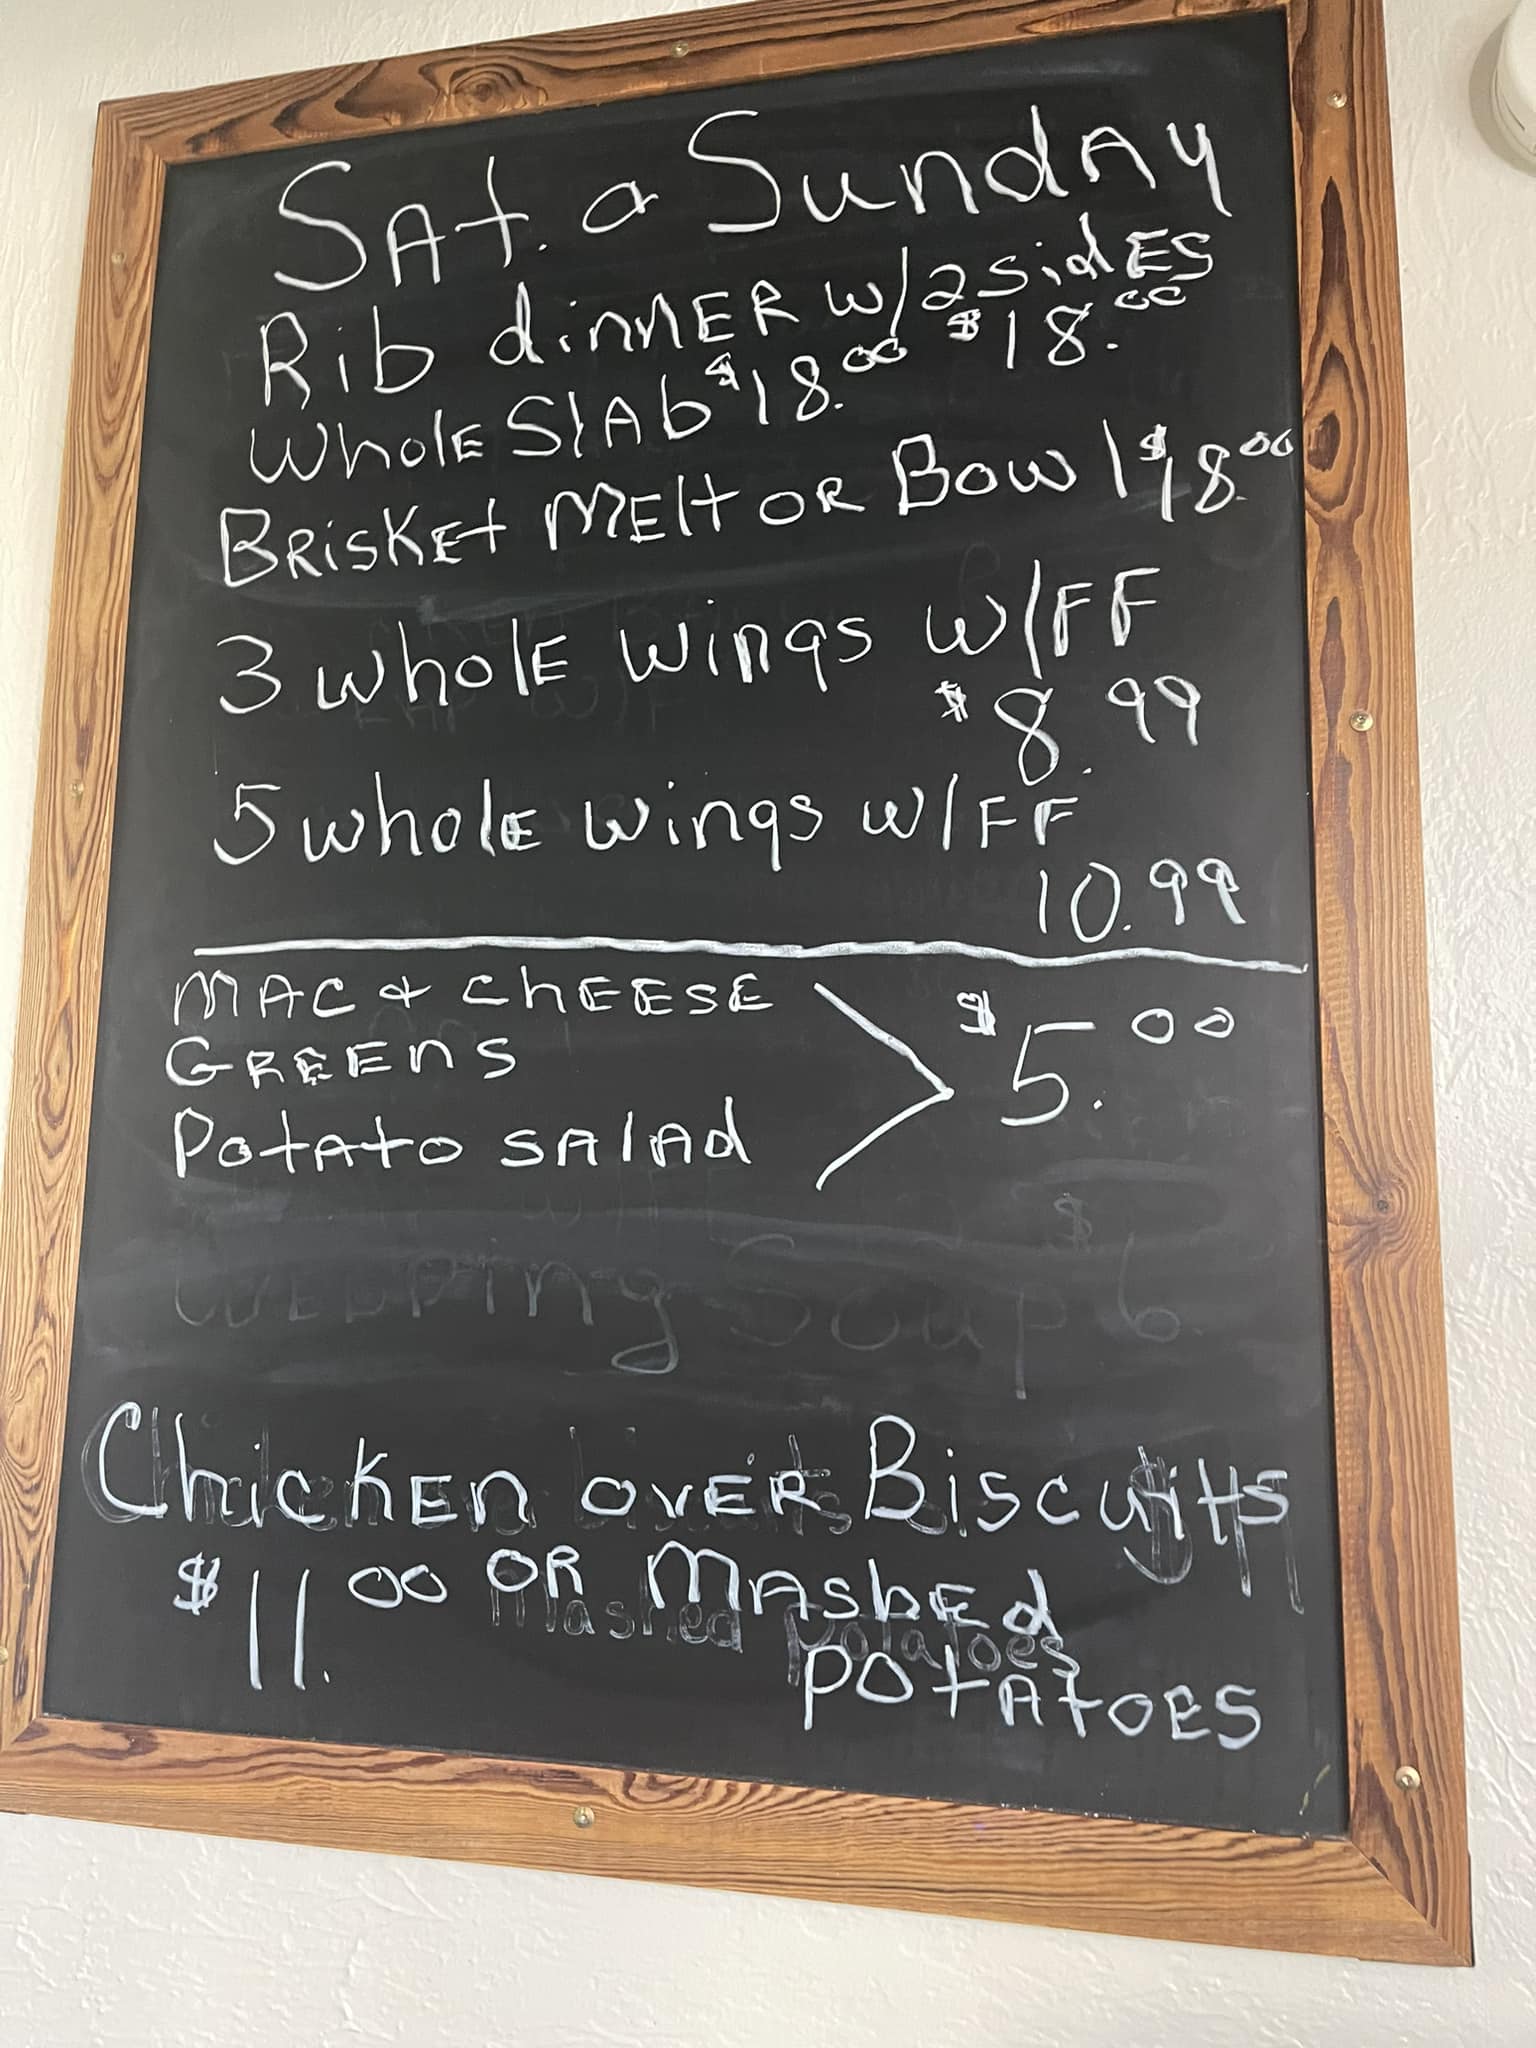 SAt. & SundAy
Rib dinnER w/2 SidES
$18.00
WholE SlAb $18.00
BRisKEt MElt OR Bowl $18.00
3 wholE wings w/FF
$8.99
5 wholE wings w/FF
10.99
MAC & ChEESE
GREEnS
PotAto SAlAd
$5.00
WEDDing Soup $6.
ChicKEn ovER Biscuits
$11.00 OR MAShEd
potAtoES